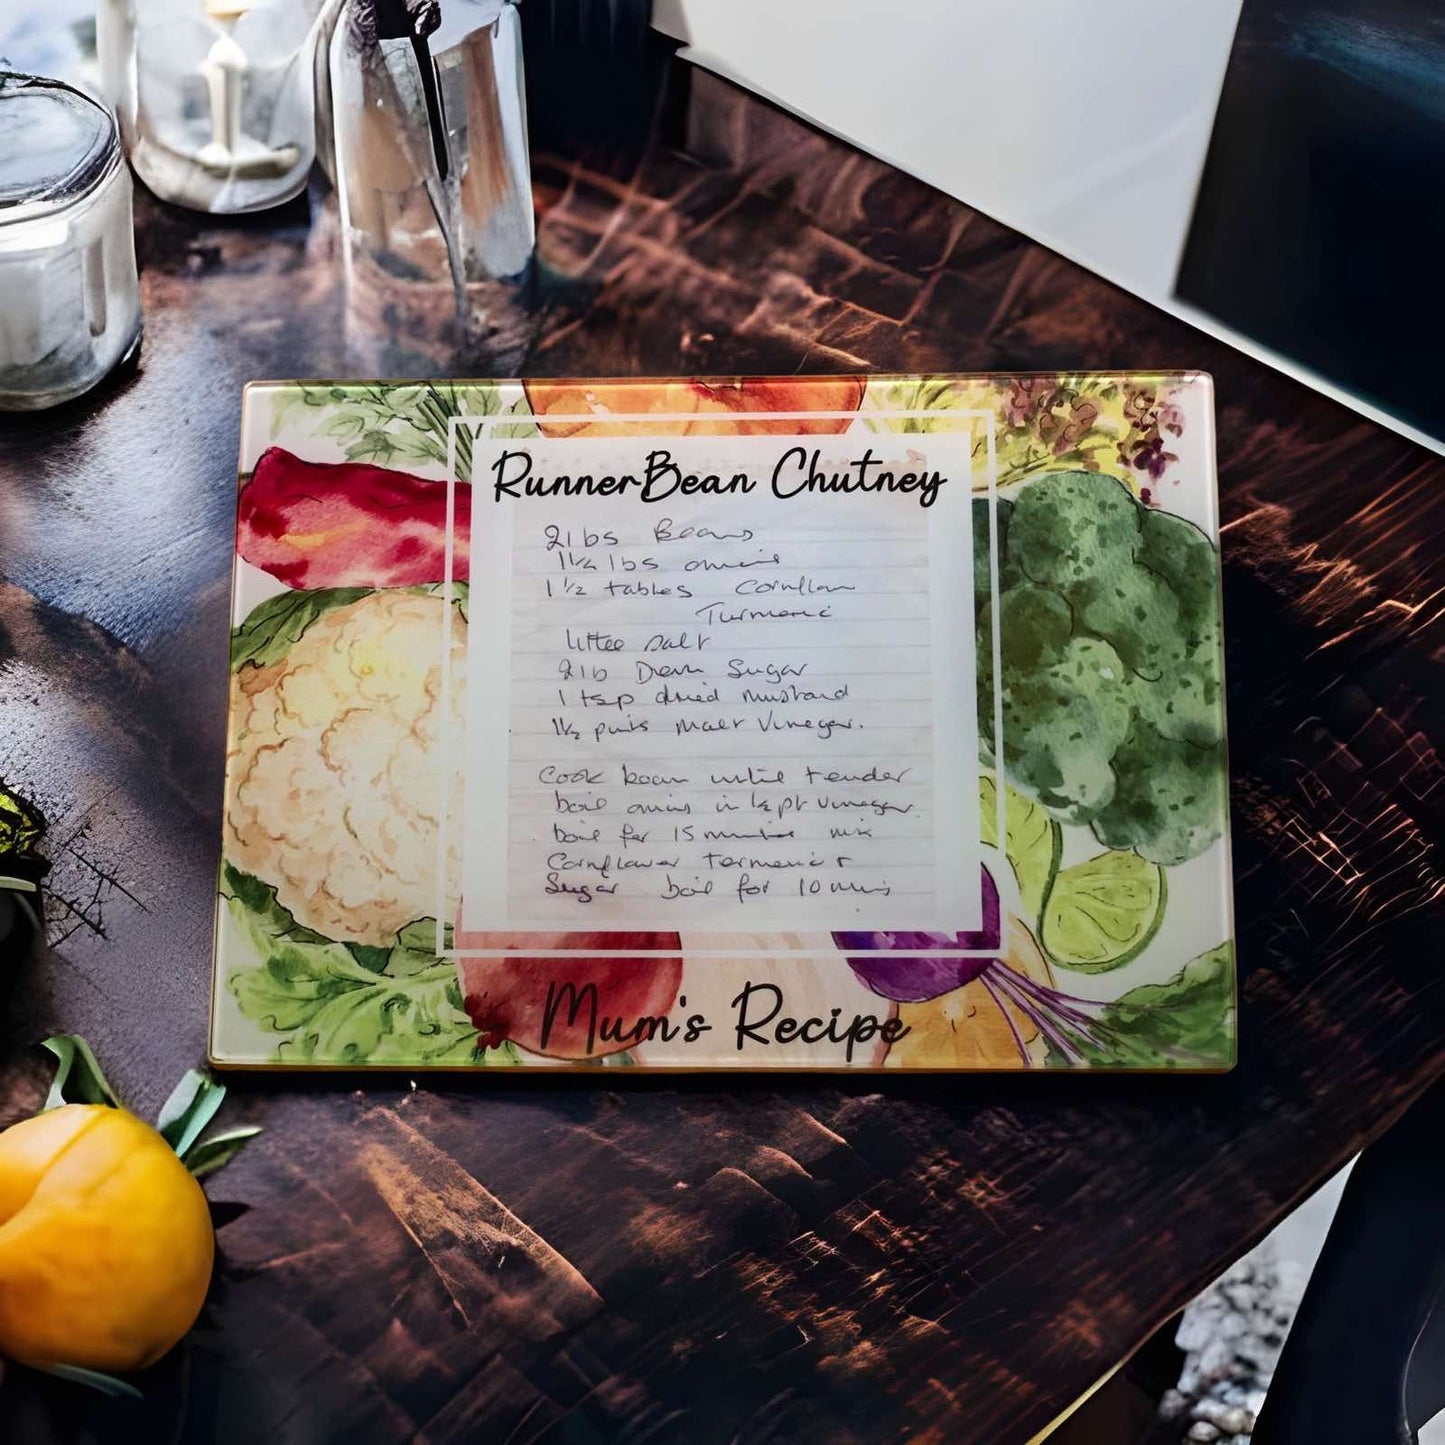 RunnerBean Chutney
2lbs Beans
1½ lbs onins
1½ tables Cornflour
Turmeric
little salt
2lb Dem Sugar
1 tsp dried mustard
1½ pints malt Vinegar.
Cook bean until tender
boil onins in ½ pt vinegar.
boil for 15 minutes mix
Cornflower Tormeric +
Sugar boil for 10 mins
Mum's Recipe